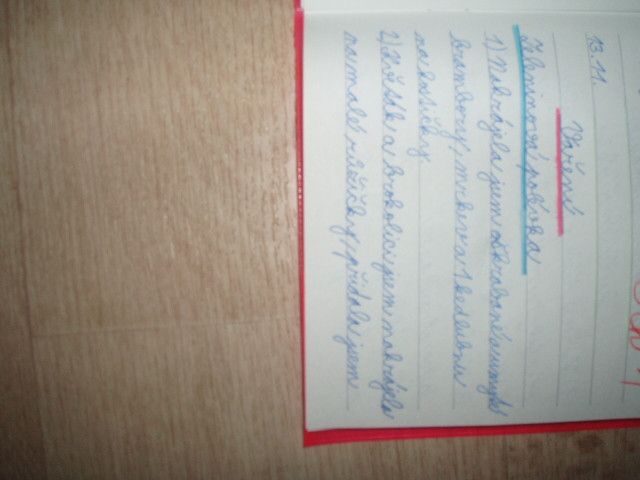 13.11.
Vaření
Zeleninová polévka
1) Nakrájela jsem oškrabané a umyté
brambory, mrkev a 1 kedlubnu
na kostičky
2) a brokolici jsem nakrájela
na malé růžičky, přidala jsem